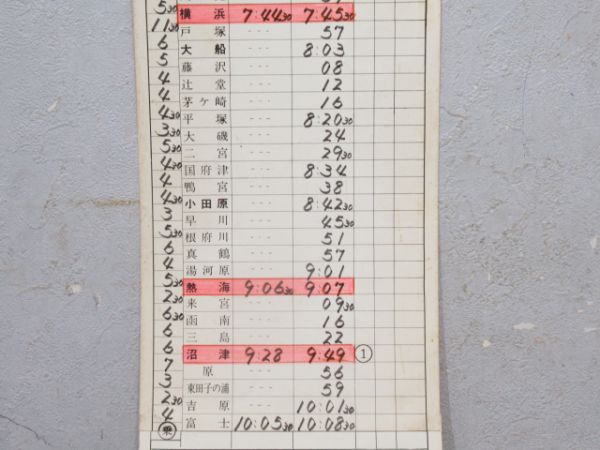 5 30 横浜 7:44 30 7:45 30
11 30 戸塚 --- 57
6 大船 --- 8:03
5 藤沢 --- 08
4 辻堂 --- 12
4 茅ケ崎 --- 16
4 30 平塚 --- 8:20 30
3 30 大磯 --- 24
5 30 二宮 --- 29 30
4 30 国府津 --- 8:34
4 鴨宮 --- 38
4 30 小田原 --- 8:42 30
3 早川 --- 45 30
5 30 根府川 --- 51
6 真鶴 --- 57
4 湯河原 --- 9:01
5 30 熱海 9:06 30 9:07
2 30 来宮 --- 09 30
6 30 函南 --- 16
6 三島 --- 22
6 沼津 9:28 9:49 ①
7 原 --- 56
3 東田子の浦 --- 59
2 30 吉原 --- 10:01 30
4 富士 10:05 30 10:08 30
乗